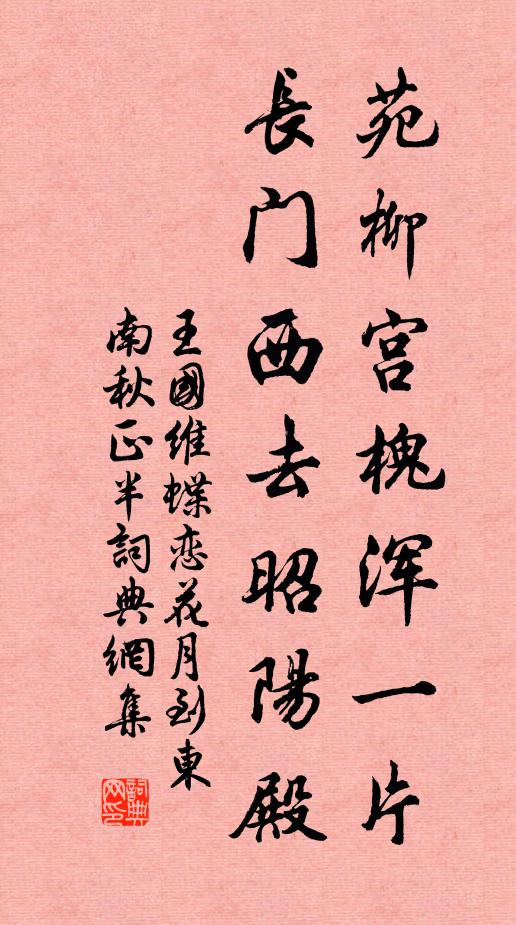 苑柳宫槐浑一片
長门西去昭陽殿
王國维蝶恋花月到東
南秋正半詞典網集
詞典网印